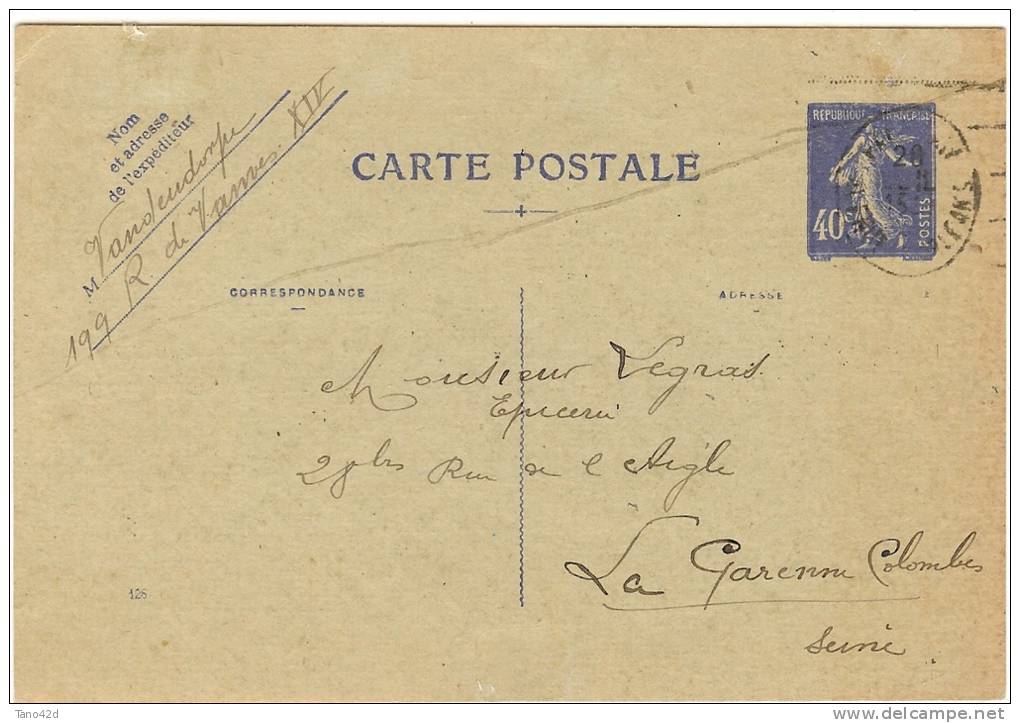 Nom
et adresse
de l'expéditeur
M Vandendorpe
199 R. de Vanves. XIV
CARTE POSTALE
REPUBLIQUE FRANÇAISE
20
40c
POSTES
CORRESPONDANCE
ADRESSE
Monsieur Legras
Epicerie
28 bis Rue de l'Aigle
La Garenne Colombes
Seine
126
Tano42d
http://www.delcampe.net